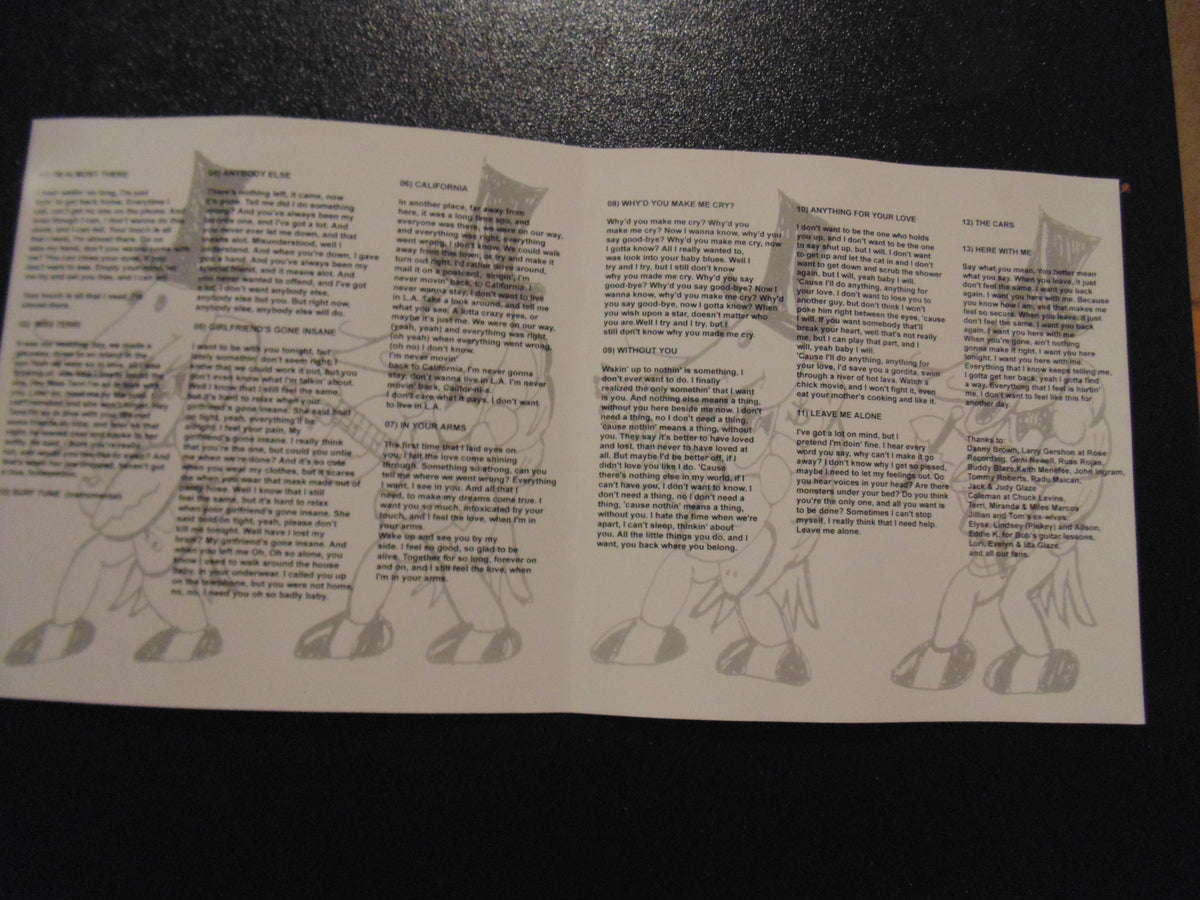 I'M ALMOST THERE
Your touch is all that I need, I'm
almost there.
MISS TERRI
SURF TUNE (instrumental)
04) ANYBODY ELSE
There's nothing left, it came, now
it's gone. Tell me did I do something
wrong? And you've always been my
favorite one, and I've got a lot. And
you never ever let me down, and that
means alot. Misunderstood, well I
understand. And when you're down, I gave
you a hand. And you've always been my
special friend, and it means alot. And
I never wanted to offend, and I've got
a lot. I don't want anybody else,
anybody else but you. But right now,
anybody else, anybody else will do.
05) GIRLFRIEND'S GONE INSANE
I want to be with you tonight, but
lately somethin' don't seem right. I
knew that we could work it out. But you
don't even know what I'm talkin' about.
Well I know that I still feel the same,
but it's hard to relax when your
girlfriend's gone insane. She said hold
on tight, yeah, everything'll be
allright. I feel your pain. My
girlfriend's gone insane. I really think
that you're the one, but could you untie
me when we're done? And it's so cute
when you wear my clothes, but it scares
me when you wear that mask made out of
panty hose. Well I know that I still
feel the same, but it's hard to relax
when your girlfriend's gone insane. She
said hold on tight, yeah, please don't
kill me tonight. Well have I lost my
brain? My girlfriend's gone insane. And
when you left me Oh, Oh so alone, you
know I used to walk around the house
baby, in your underwear. I called you up
on the telephone, but you were not home,
no, no. I need you oh so badly baby.
06) CALIFORNIA
In another place, far away from
here, it was a long time ago, and
everyone was there, we were on our way,
and everything was right, everything
went wrong, I don't know. We could walk
away from this town, or try and make it
turn out right. I'd rather drive around,
mail it on a postcard, singin', I'm
never movin' back, to California. I
never wanna stay, I don't want to live
in L.A. Take a look around, and tell me
what you see. A lotta crazy eyes, or
maybe it's just me. We were on our way,
(yeah, yeah) and everything was right,
(oh yeah) when everything went wrong,
(oh no) I don't know.
I'm never movin'
back to California, I'm never gonna
stay, don't wanna live in L.A. I'm never
movin' back, Califor-ni-a.
I don't care what it pays, I don't want
to live in L.A.
07) IN YOUR ARMS
The first time that I laid eyes on
you, I felt the love come shining
through. Something so strong, can you
tell me where we went wrong? Everything
I want, I see in you. And all that I
need, to make my dreams come true. I
want you so much, intoxicated by your
touch, and I feel the love, when I'm in
your arms.
Wake up and see you by my
side. I feel so good, so glad to be
alive. Together for so long, forever on
and on, and I still feel the love, when
I'm in your arms.
08) WHY'D YOU MAKE ME CRY?
Why'd you make me cry? Why'd you
make me cry? Now I wanna know, why'd you
say good-bye? Why'd you make me cry, now
I gotta know? All I really wanted to,
was look into your baby blues. Well I
try and I try, but I still don't know
why you made me cry. Why'd you say
good-bye? Why'd you say good-bye? Now I
wanna know, why'd you make me cry? Why'd
you say good-bye, now I gotta know? When
you wish upon a star, doesn't matter who
you are Well I try and I try, but I
still don't know why you made me cry.
09) WITHOUT YOU
Wakin' up to nothin' is something, I
don't ever want to do. I finally
realized the only somethin' that I want
is you. And nothing else means a thing,
without you here beside me now. I don't
need a thing, no I don't need a thing,
'cause nothin' means a thing, without
you. They say it's better to have loved
and lost, than never to have loved at
all. But maybe I'd be better off, if I
didn't love you like I do. 'Cause
there's nothing else in my world, if I
can't have you, I don't want to know. I
don't need a thing, no I don't need a
thing, 'cause nothin' means a thing,
without you. I hate the time when we're
apart, I can't sleep, thinkin' about
you. All the little things you do, and I
want, you back where you belong.
10) ANYTHING FOR YOUR LOVE
I don't want to be the one who holds
you up, and I don't want to be the one
to say shut up, but I will. I don't want
to get up and let the cat in and I don't
want to get down and scrub the shower
again, but I will, yeah baby I will.
'Cause I'll do anything, anything for
your love. I don't want to lose you to
another guy, but don't think I won't
poke him right between the eyes, 'cause
I will. If you want somebody that'll
break your heart, well that's not really
me, but I can play that part, and I
will, yeah baby I will.
'Cause I'll do anything, anything for
your love, I'd save you a gordita, swim
through a river of hot lava. Watch a
chick movie, and I won't fight it, even
eat your mother's cooking and like it.
11) LEAVE ME ALONE
I've got a lot on mind, but I
pretend I'm doin' fine. I hear every
word you say, why can't I make it go
away? I don't know why I get so pissed,
maybe I need to let my feelings out. Do
you hear voices in your head? Are there
monsters under your bed? Do you think
you're the only one, and all you want is
to be done? Sometimes I can't stop
myself, I really think that I need help.
Leave me alone.
12) THE CARS
13) HERE WITH ME
Say what you mean. You better mean
what you say. When you leave, it just
don't feel the same. I want you back
again. I want you here with me. Because
you know how I am, and that makes me
feel so secure. When you leave, it just
don't feel the same. I want you back
again. I want you here with me.
When you're gone, ain't nothing
gonna make it right. I want you here
tonight. I want you here with me.
Everything that I know keeps telling me,
I gotta get her back, yeah I gotta find
a way. Everything that I feel is hurtin'
me, I don't want to feel like this for
another day.
Thanks to:
Danny Brown, Larry Gershon at Rose
Recording, Geni Newell, Russ Rojas,
Buddy Blaze, Keith Menefes, John Ingram,
Tommy Roberts, Radu Maican,
Jack & Judy Glaze
Coleman at Chuck Levins,
Terri, Miranda & Miles Marcos
Jillian and Tom's ex-wives,
Elyse, Lindsey (Piskey) and Alison,
Eddie K. for Bob's guitar lessons,
Lori, Evelyn & Ida Glaze,
and all our fans.